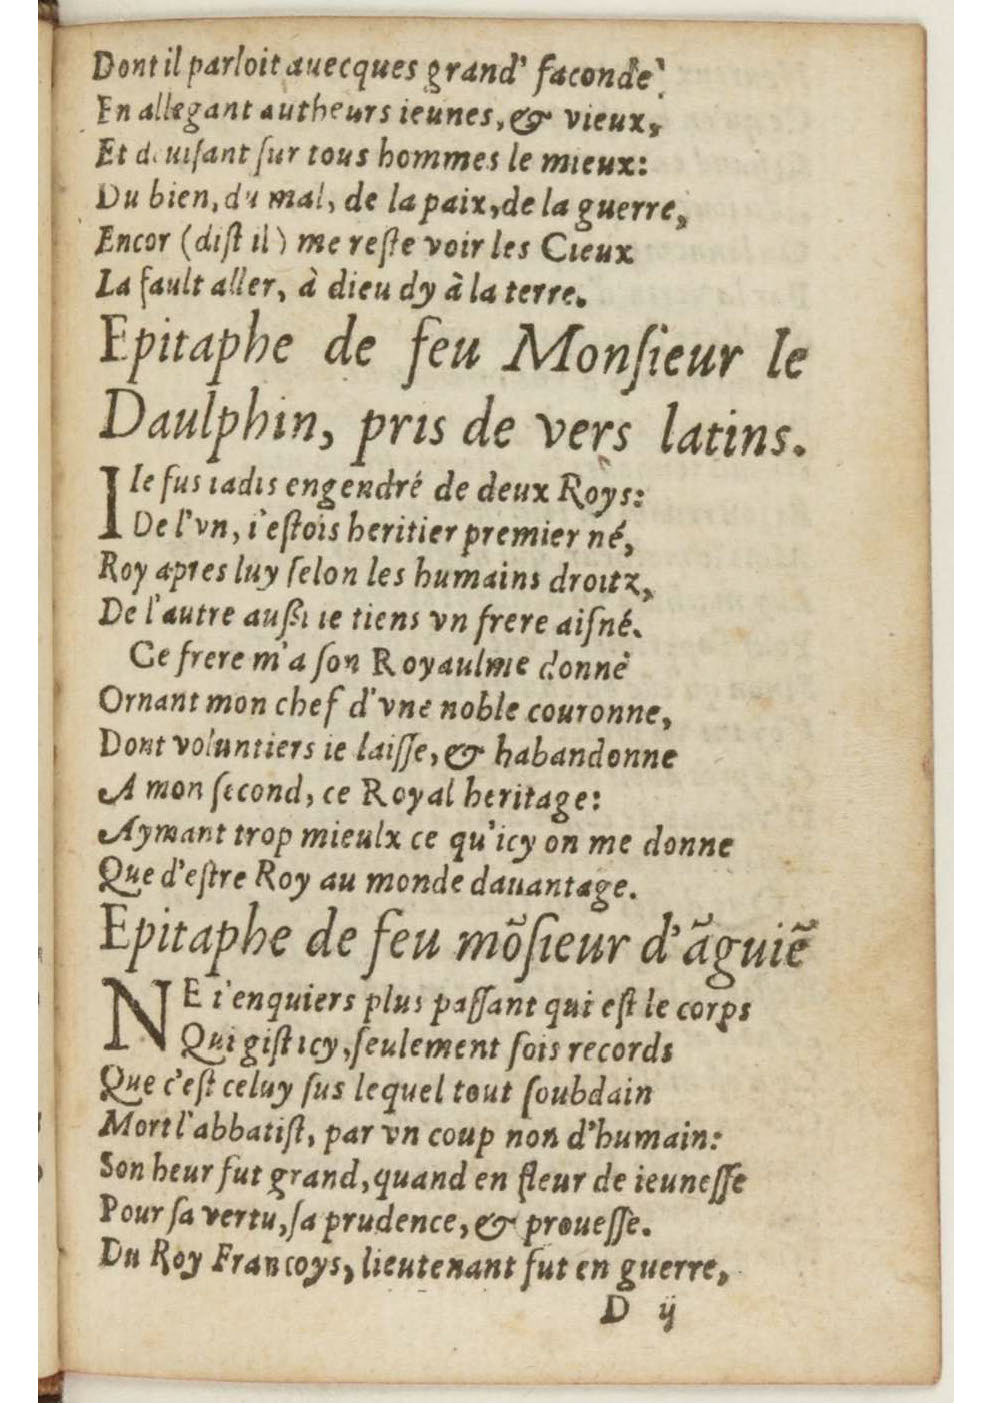 Dont il parloit auecques grand' faconde:
En allegant autheurs ieunes, & vieux,
Et deuiſant ſur tous hommes le mieux:
Du bien, du mal, de la paix, de la guerre,
Encor (diſt il) me reſte voir les Cieux
La fault aller, à dieu dy à la terre.
Epitaphe de feu Monſieur le
Daulphin, pris de vers latins.
IIe fus iadis engendré de deux Roys:
De l'vn, i'eſtois heritier premier né,
Roy apres luy ſelon les humains droitz,
De l'autre auſſi ie tiens vn frere aiſné.
Ce frere m'a ſon Royaulme donné
Ornant mon chef d'vne noble couronne,
Dont voluntiers ie laiſſe, & habandonne
A mon ſecond, ce Royal heritage:
Aymant trop mieulx ce qu'icy on me donne
Que d'eſtre Roy au monde dauantage.
Epitaphe de feu mõſieur d'ãguiẽ
NE t'enquiers plus paſſant qui eſt le corps
Qui giſt icy, ſeulement ſois records
Que c'eſt celuy ſus lequel tout ſoubdain
Mort l'abbatiſt, par vn coup non d'humain:
Son heur fut grand, quand en fleur de ieuneſſe
Pour ſa vertu, ſa prudence, & proueſſe.
Du Roy Francoys, lieutenant fut en guerre,
D ij